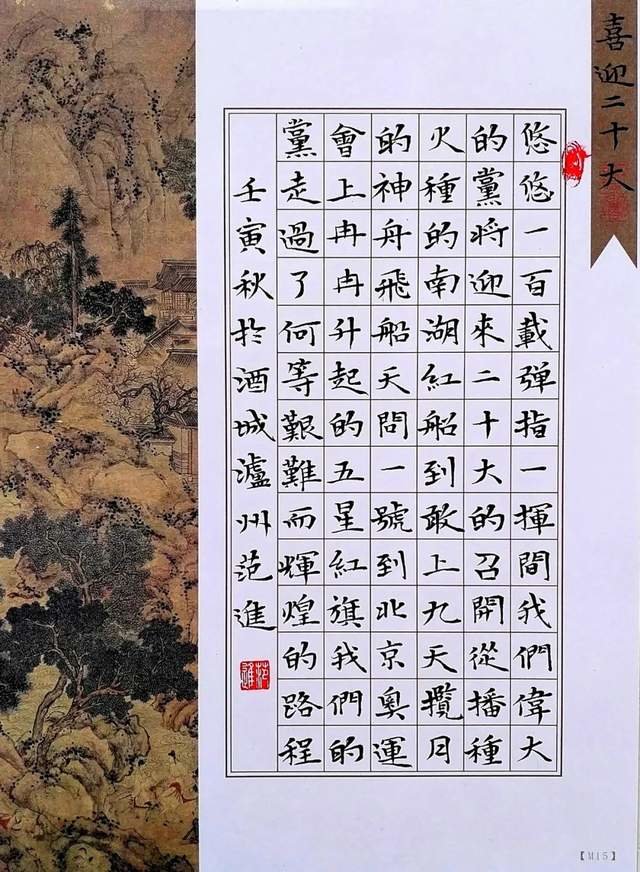 喜迎二十大
悠悠一百載弹指一揮間我們偉大
的黨将迎來二十大的召開從播種
火種的南湖紅船到敢上九天攬月
的神舟飛船天問一號到北京奧運
會上冉冉升起的五星紅旗我們的
黨走過了何等艱難而輝煌的路程
壬寅秋扵酒城瀘州范進
范進
【M15】